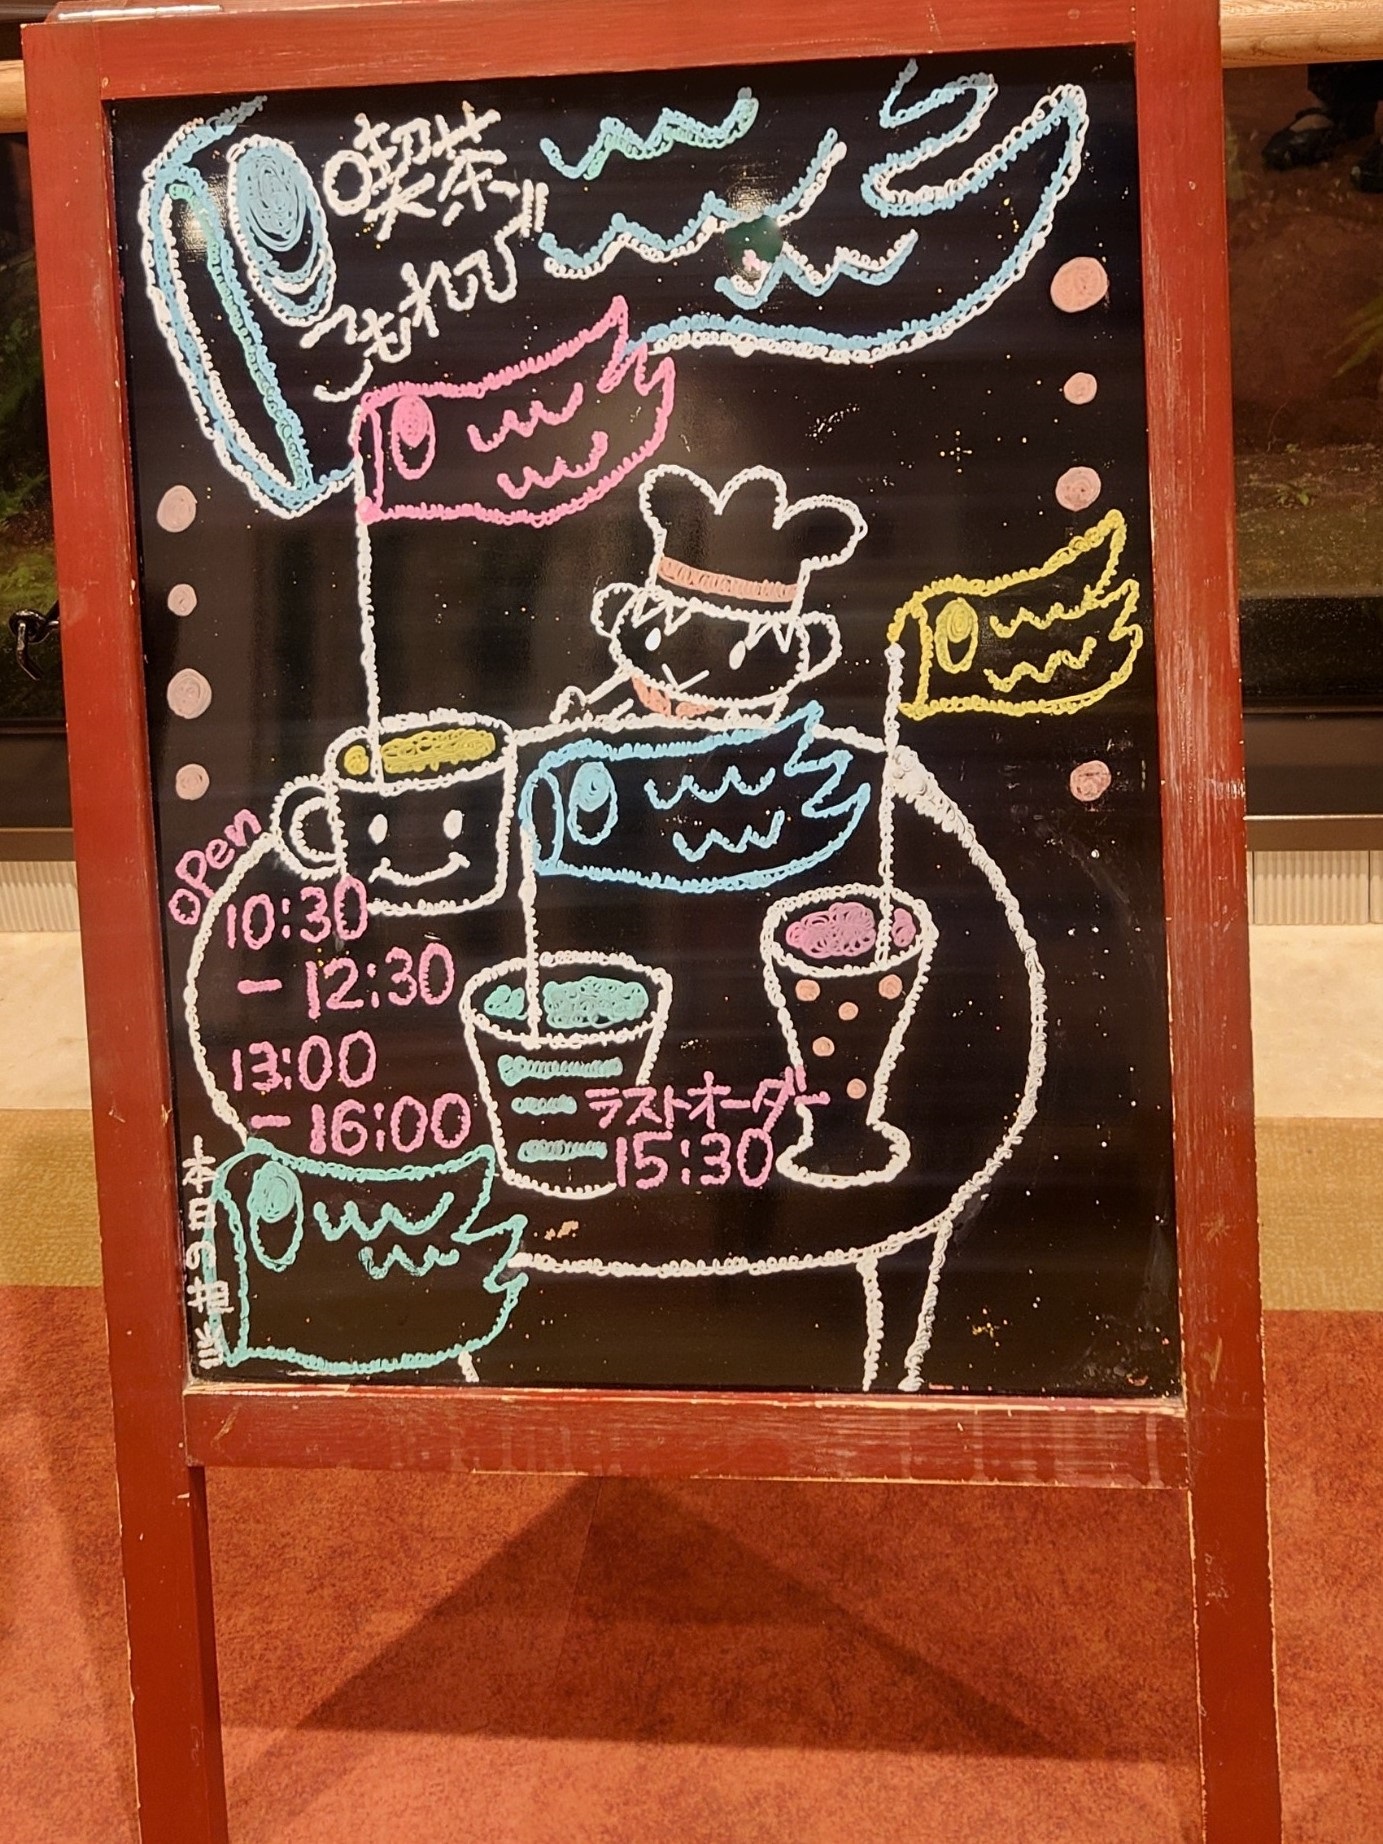 喫茶
こもれび
OPen
10:30
- 12:30
13:00
- 16:00
ラストオーダー
15:30